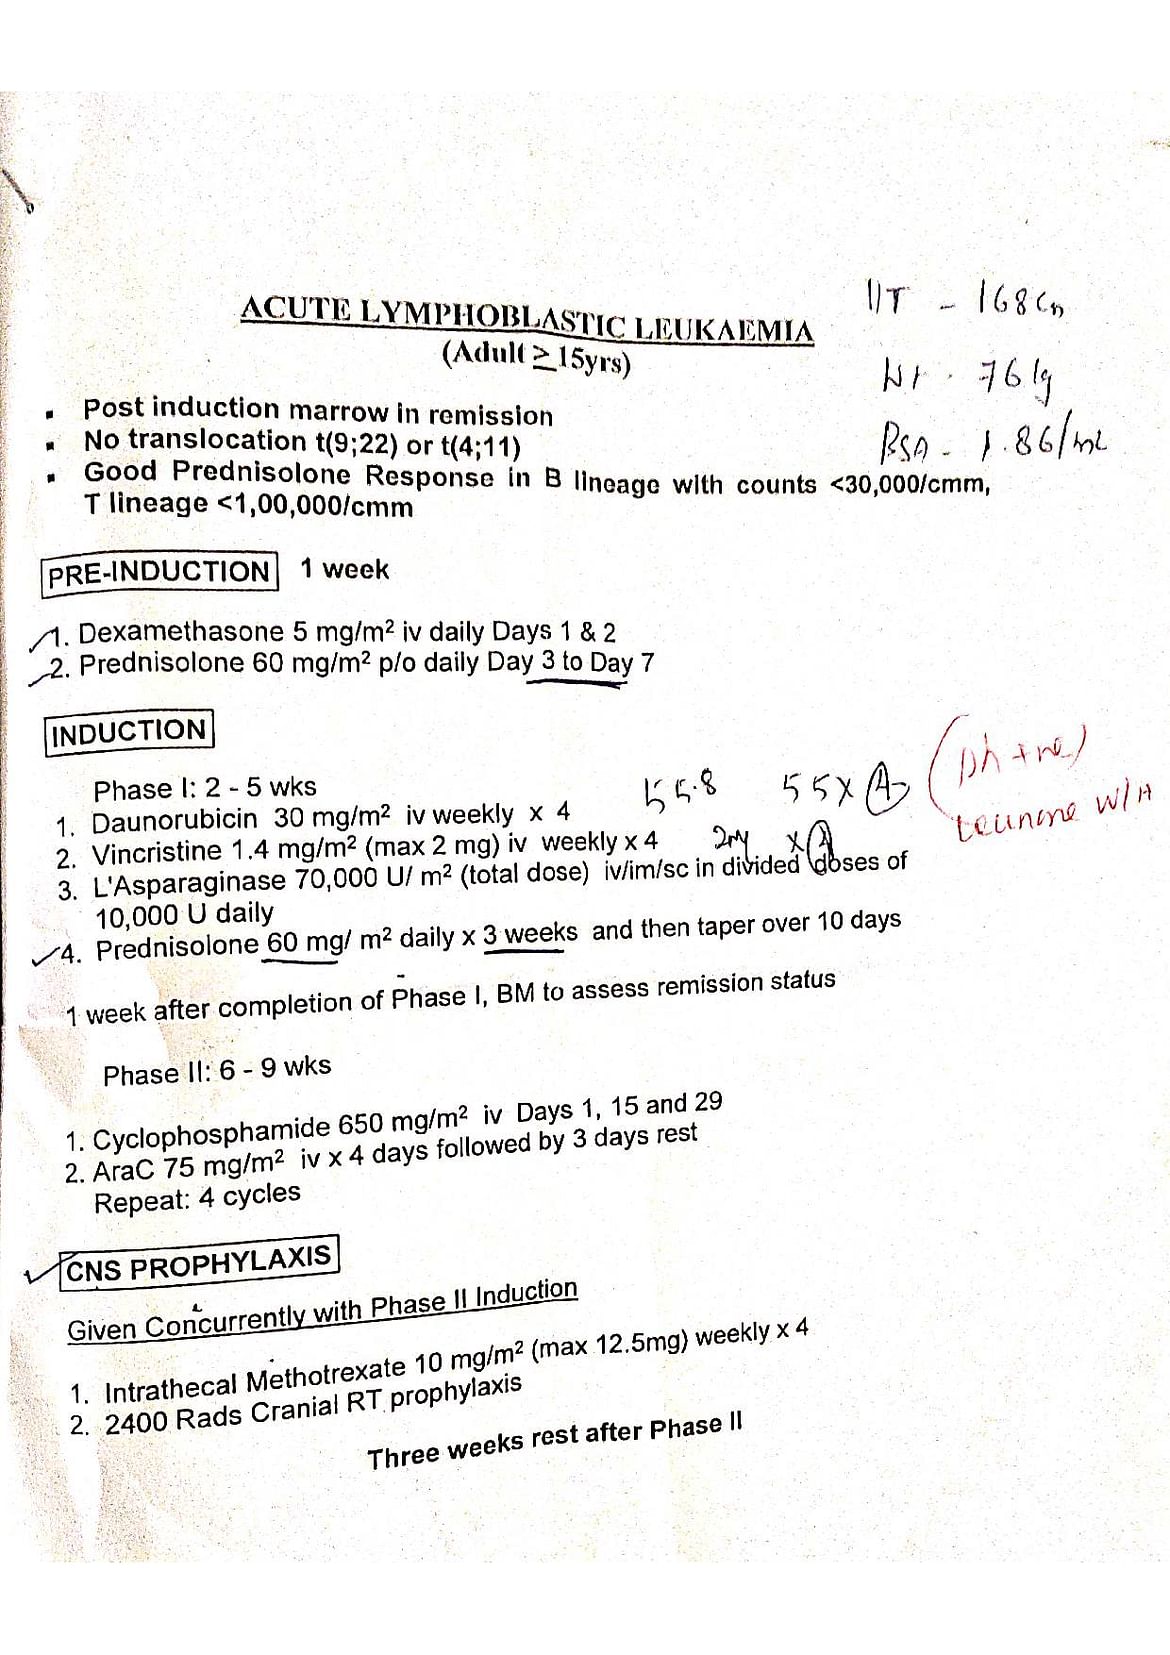 ACUTE LYMPHOBLASTIC LEUKAEMIA
(Adult ≥ 15yrs)
HT - 168cm
Wt - 76 kg
BSA - 1.86/m2
▪ Post induction marrow in remission
▪ No translocation t(9;22) or t(4;11)
▪ Good Prednisolone Response in B lineage with counts <30,000/cmm,
T lineage <1,00,000/cmm
PRE-INDUCTION 1 week
1. Dexamethasone 5 mg/m² iv daily Days 1 & 2
2. Prednisolone 60 mg/m² p/o daily Day 3 to Day 7
INDUCTION
Phase I: 2 - 5 wks
1. Daunorubicin 30 mg/m² iv weekly x 4 55.8 55 x 4
2. Vincristine 1.4 mg/m² (max 2 mg) iv weekly x 4 2mg x 4
3. L'Asparaginase 70,000 U/ m² (total dose) iv/im/sc in divided doses of
10,000 U daily
4. Prednisolone 60 mg/ m² daily x 3 weeks and then taper over 10 days
1 week after completion of Phase I, BM to assess remission status
Phase II: 6 - 9 wks
1. Cyclophosphamide 650 mg/m² iv Days 1, 15 and 29
2. AraC 75 mg/m² iv x 4 days followed by 3 days rest
Repeat: 4 cycles
CNS PROPHYLAXIS
Given Concurrently with Phase II Induction
1. Intrathecal Methotrexate 10 mg/m² (max 12.5mg) weekly x 4
2. 2400 Rads Cranial RT prophylaxis
Three weeks rest after Phase II